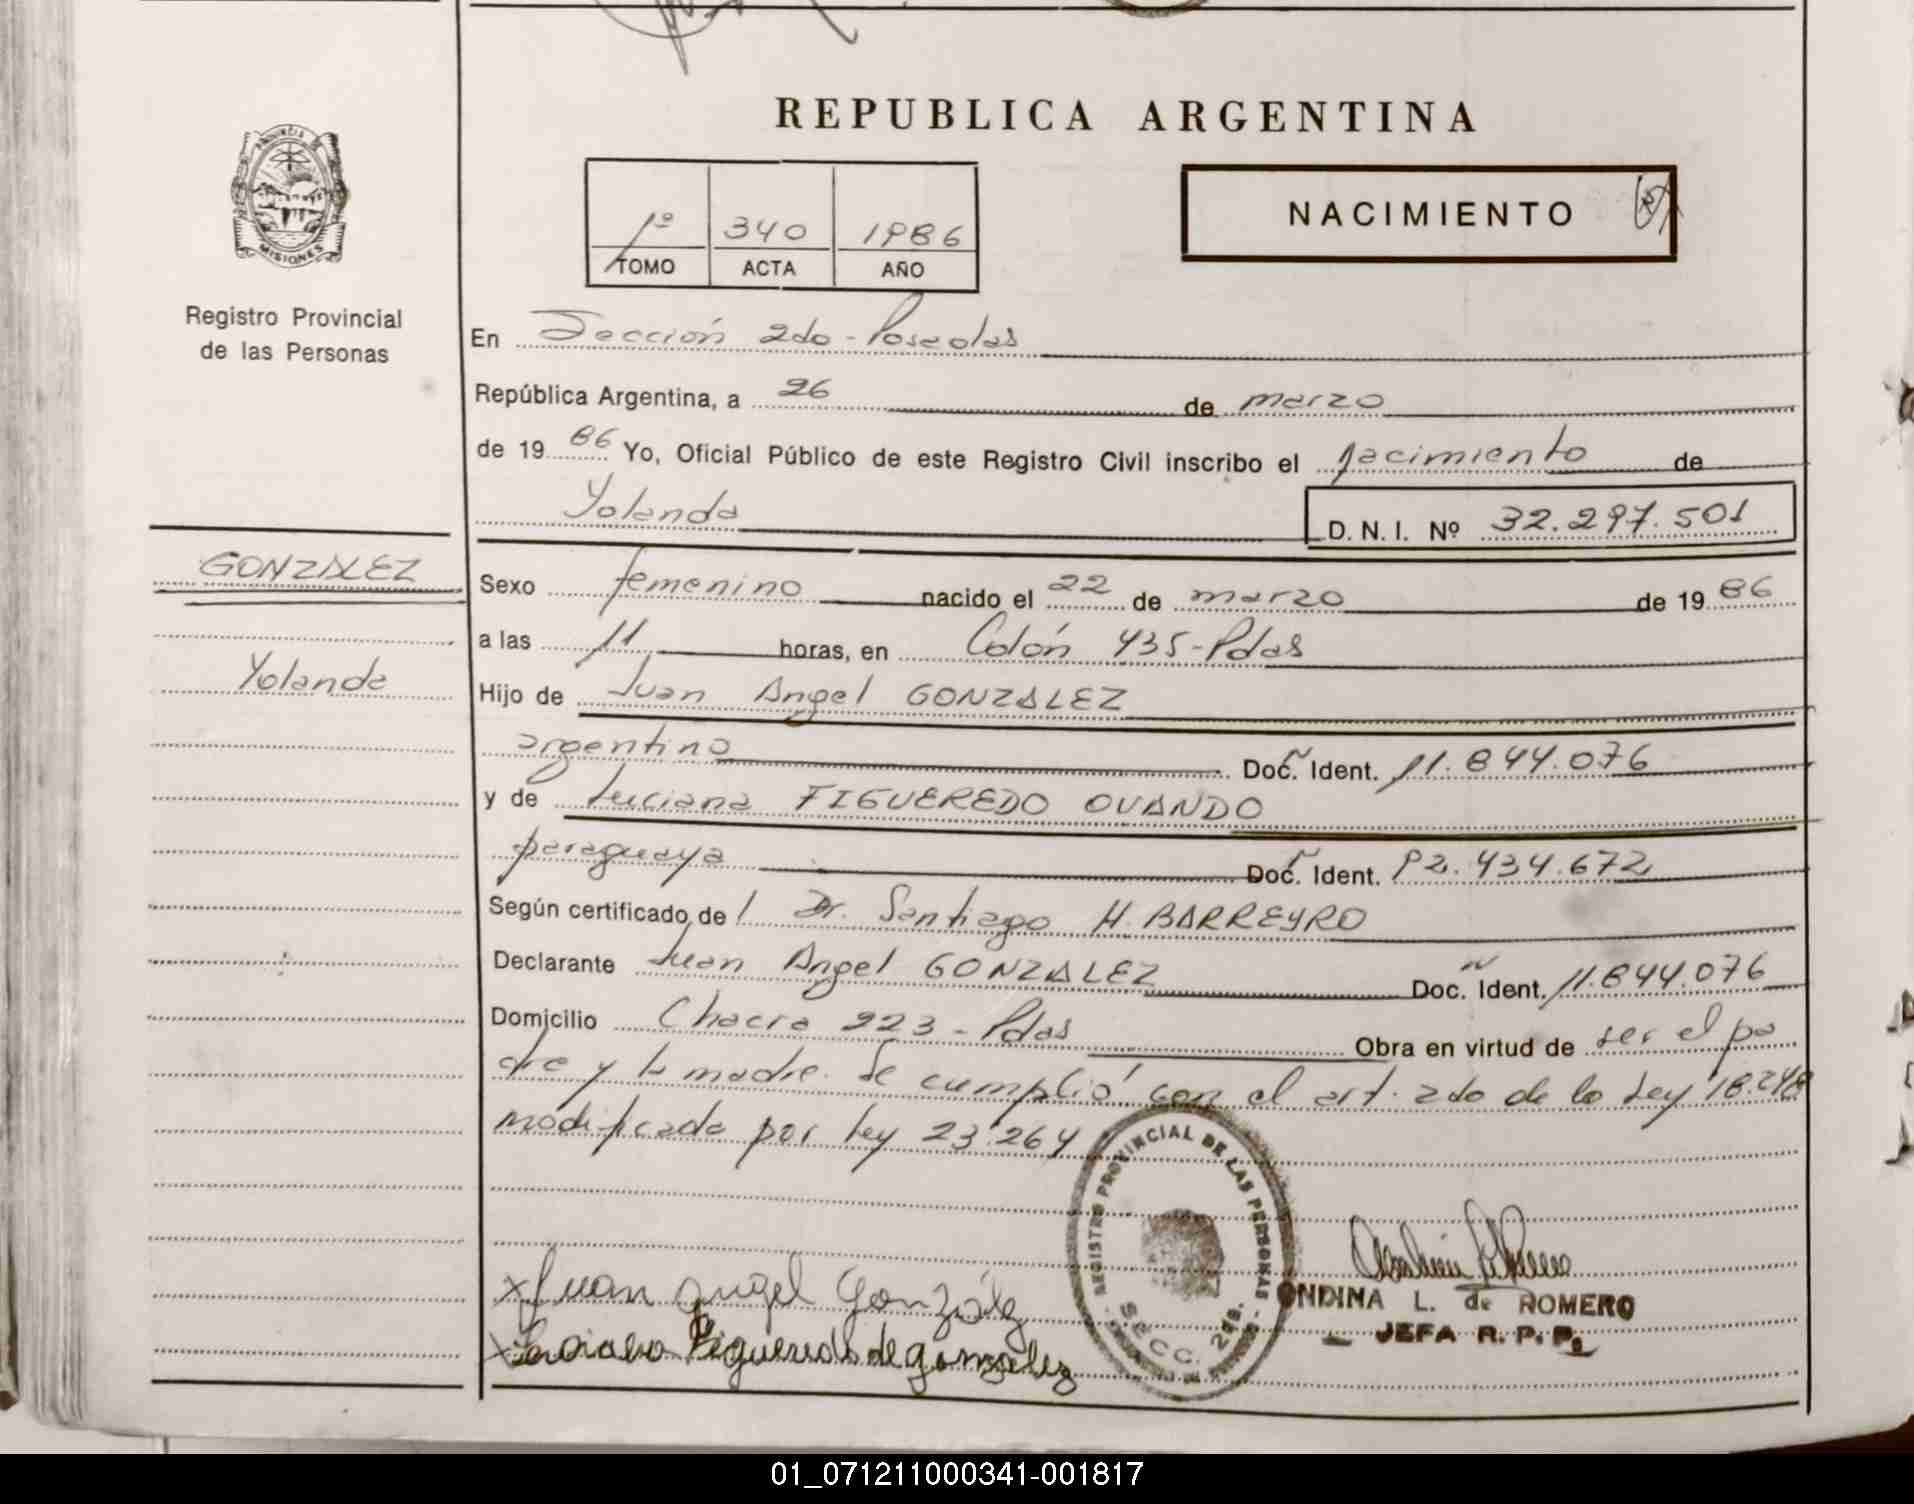 REPUBLICA ARGENTINA
PROVINCIA DE
MISIONES
Registro Provincial
de las Personas
1º 340 1986
TOMO ACTA AÑO
NACIMIENTO
En Sección 2do - Posadas
República Argentina, a 26 de marzo
de 1986 Yo, Oficial Público de este Registro Civil inscribo el nacimiento de
Yolanda D. N. I. Nº 32.297.501
GONZALEZ
Yolanda
Sexo femenino nacido el 22 de marzo de 1986
a las 11 horas, en Colón 435 - Pdas
Hijo de Juan Angel GONZALEZ
argentino Doc. Ident. 11.844.076
y de Luciana FIGUEREDO OVANDO
paraguaya Doc. Ident. 92.434.672
Según certificado de l Dr. Santiago H. BARREYRO
Declarante Juan Angel GONZALEZ Doc. Ident. 11.844.076
Domicilio Chacra 223 - Pdas Obra en virtud de ser el pa
dre y la madre. Se cumplió con el art. 2do de la Ley 18.248
modificada por ley 23.264
REGISTRO PROVINCIAL DE LAS PERSONAS
SECC. 2da.
x Juan Angel González
x Luciana Figueredo de gonzalez
ONDINA L. de ROMERO
JEFA R. P. P.
01_071211000341-001817